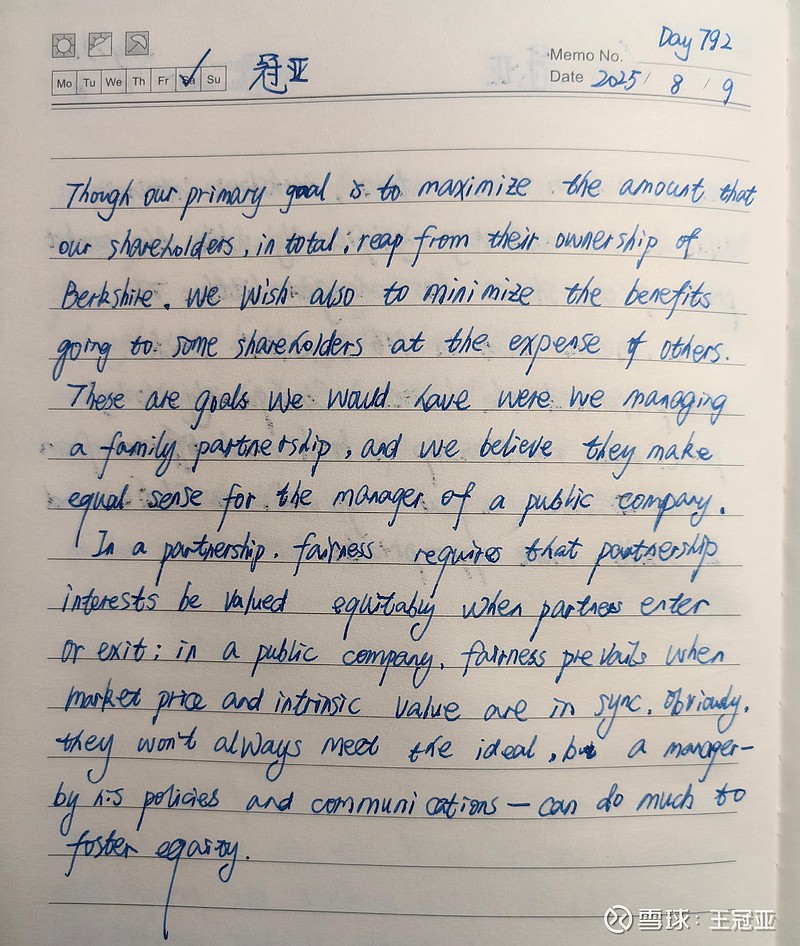 Day 792
Memo No.
Mo Tu We Th Fr Sa Su
冠亚
Date 2025/ 8 / 9
Though our primary goal is to maximize the amount that
our shareholders, in total, reap from their ownership of
Berkshire, we wish also to minimize the benefits
going to some shareholders at the expense of others.
These are goals we would have were we managing
a family partnership, and we believe they make
equal sense for the manager of a public company.
In a partnership, fairness requires that partnership
interests be valued equitably when partners enter
or exit; in a public company, fairness prevails when
market price and intrinsic value are in sync. Obviously,
they won't always meet the ideal, but a manager—
by his policies and communications — can do much to
foster equity.
雪球：王冠亚